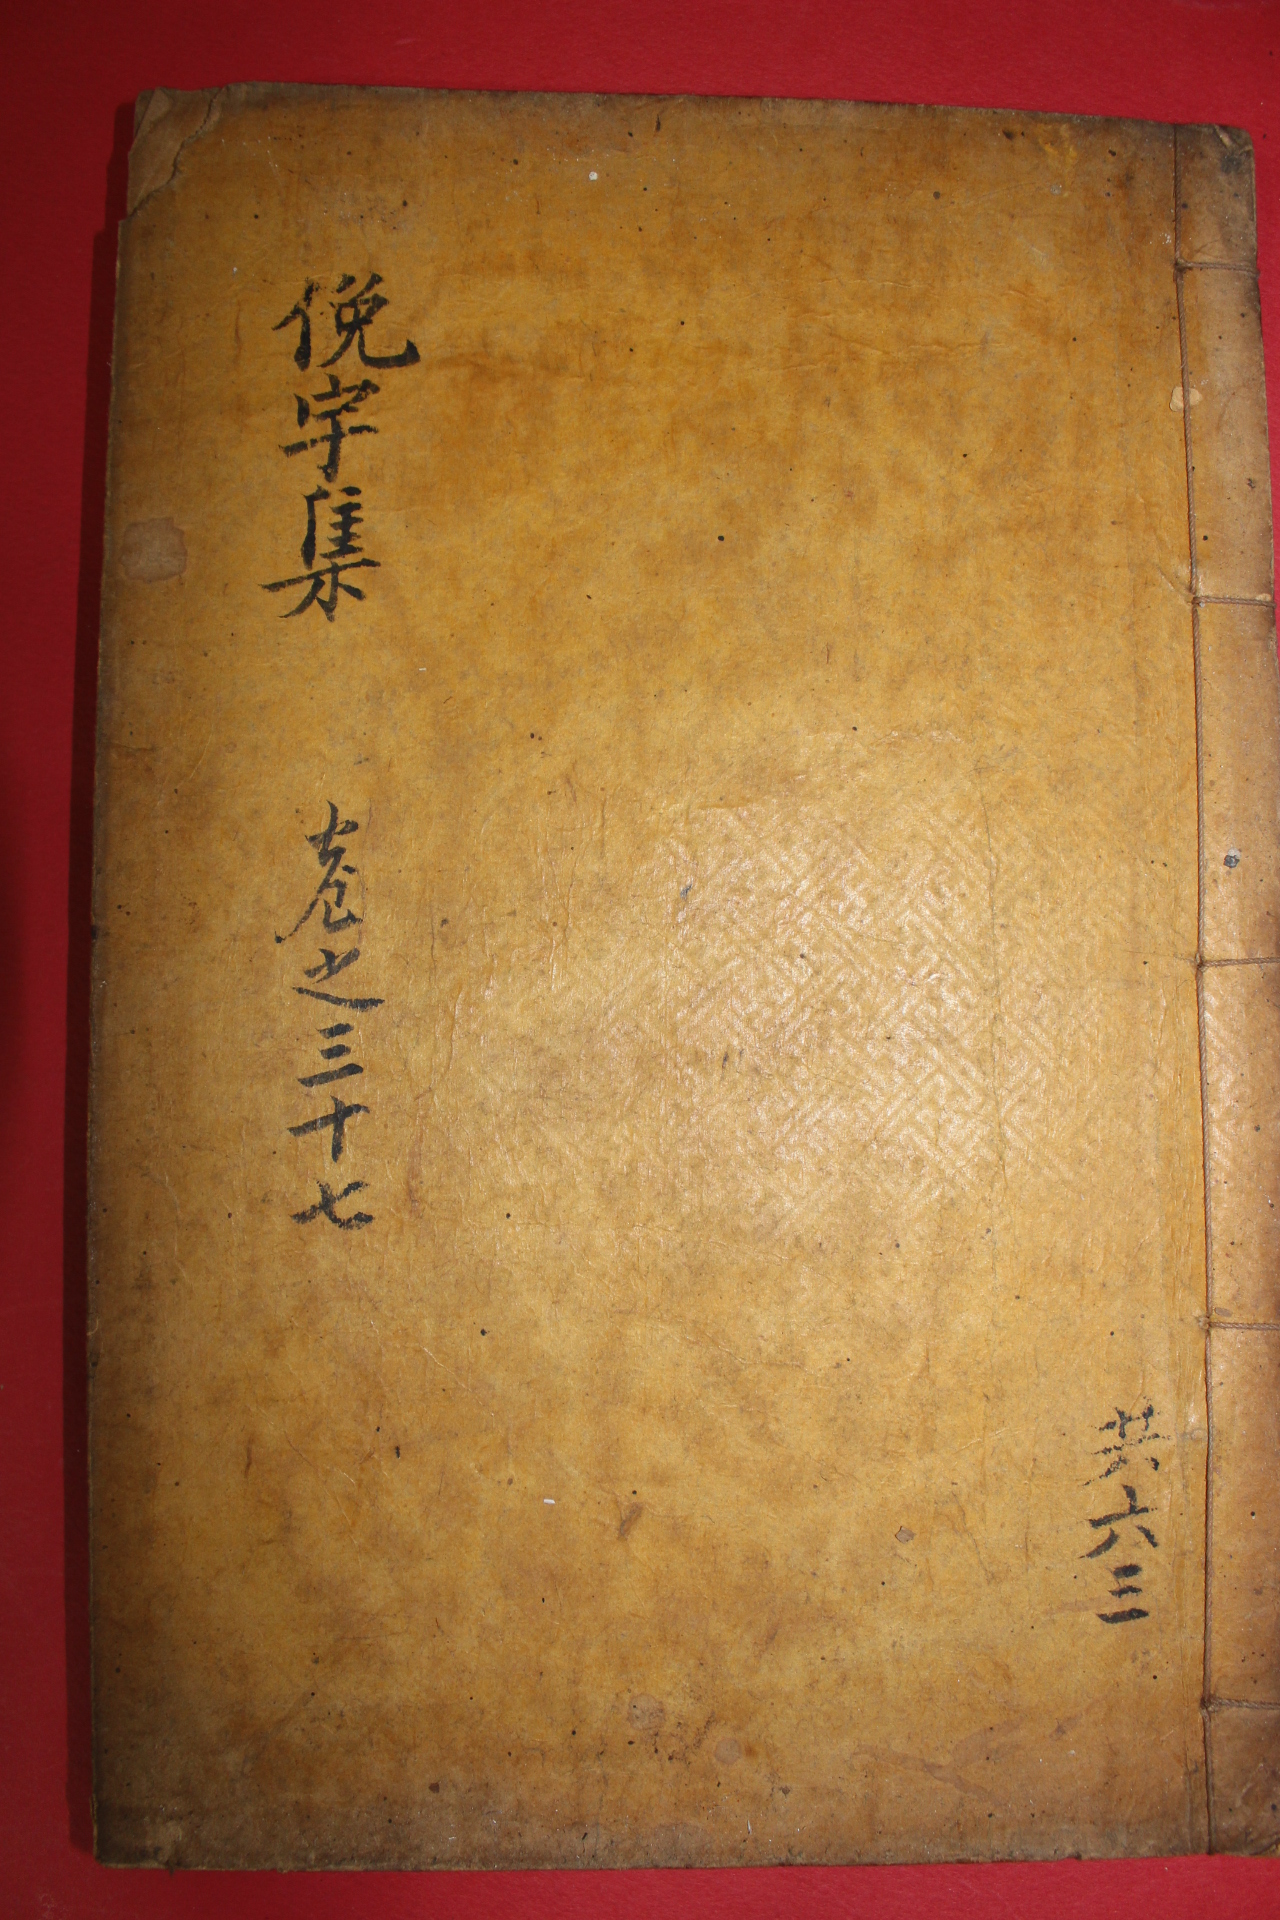 俛宇集 卷之三十七
共六三